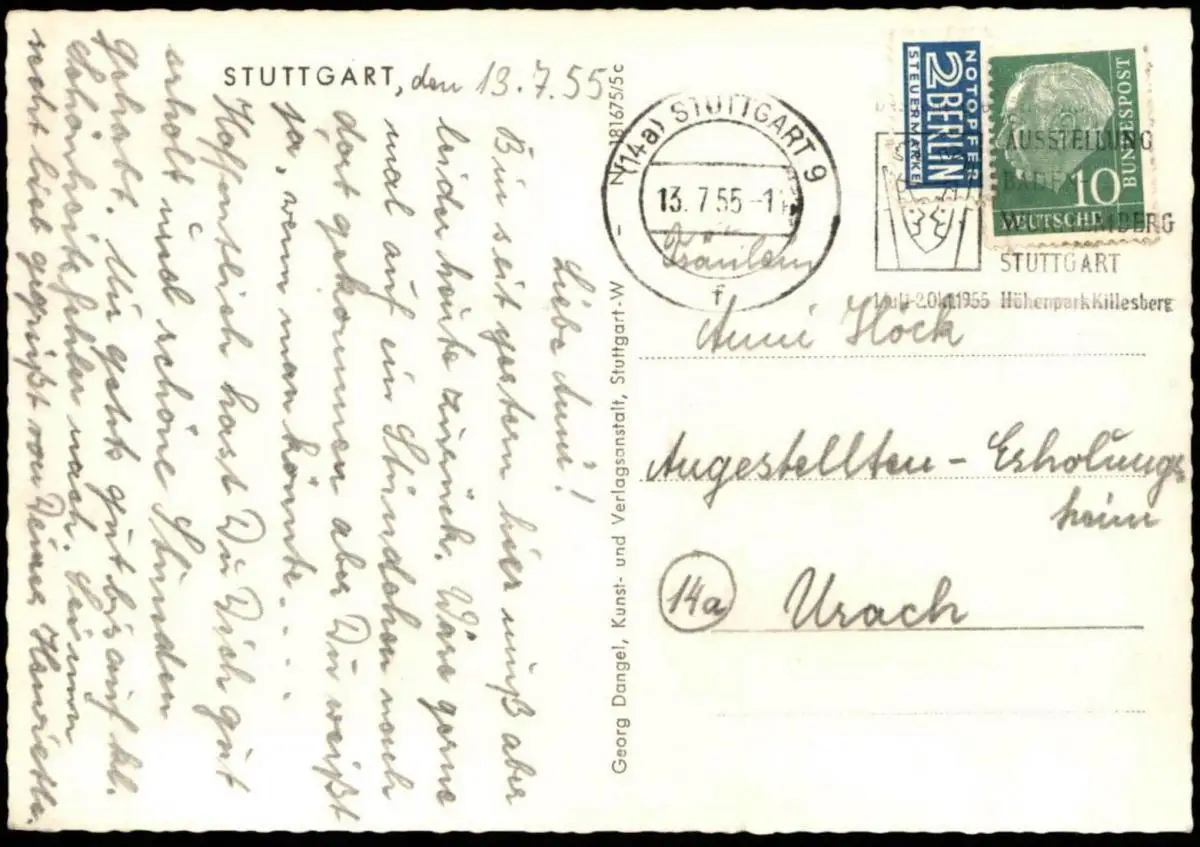 STUTTGART, den 13.7.55
Liebe Anni!
Bin seit gestern hier muß aber
leider heute zurück. Wäre gerne
mal auf ein Stündchen nach
dort gekommen aber Du weißt
ja, wenn man könnte....
Hoffentlich hast Du Dich gut
erholt und schöne Stunden
gehabt. Mir geht gut bis auf kl.
Schönheitsfehler nach.
recht lieb gegrüßt von Deiner Henriette.
N 181675/5c
Georg Dangel, Kunst- und Verlagsanstalt, Stuttgart-W
(14a) STUTTGART 9
13. 7 55 -1
f
NOTOPFER
2 BERLIN
STEUERMARKE
10
DEUTSCHE
BUNDESPOST
AUSSTELLUNG
BADEN
WÜRTTEMBERG
STUTTGART
1.Juli-2.Okt.1955 Höhenpark Killesberg
Fräulein
Anni Höck
Angestellten - Erholungs
heim
14a Urach